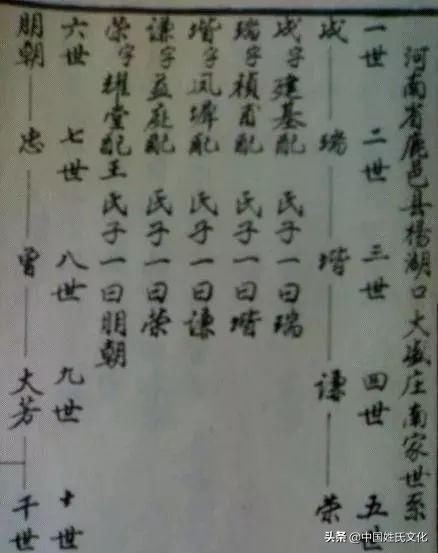 河南省鹿邑县杨湖口大盛庄南家世系
一世 二世 三世 四世 五世
成 瑞 堦 谦 荣
成字建基配 氏子一曰瑞
瑞字祯甫配 氏子一曰堦
堦字凤墀配 氏子一曰谦
谦字益庭配 氏子一曰荣
荣字耀堂配王氏子一曰朋朝
六世 七世 八世 九世 十世
朋朝 忠 曾 大芳 千世
头条 @中国姓氏文化